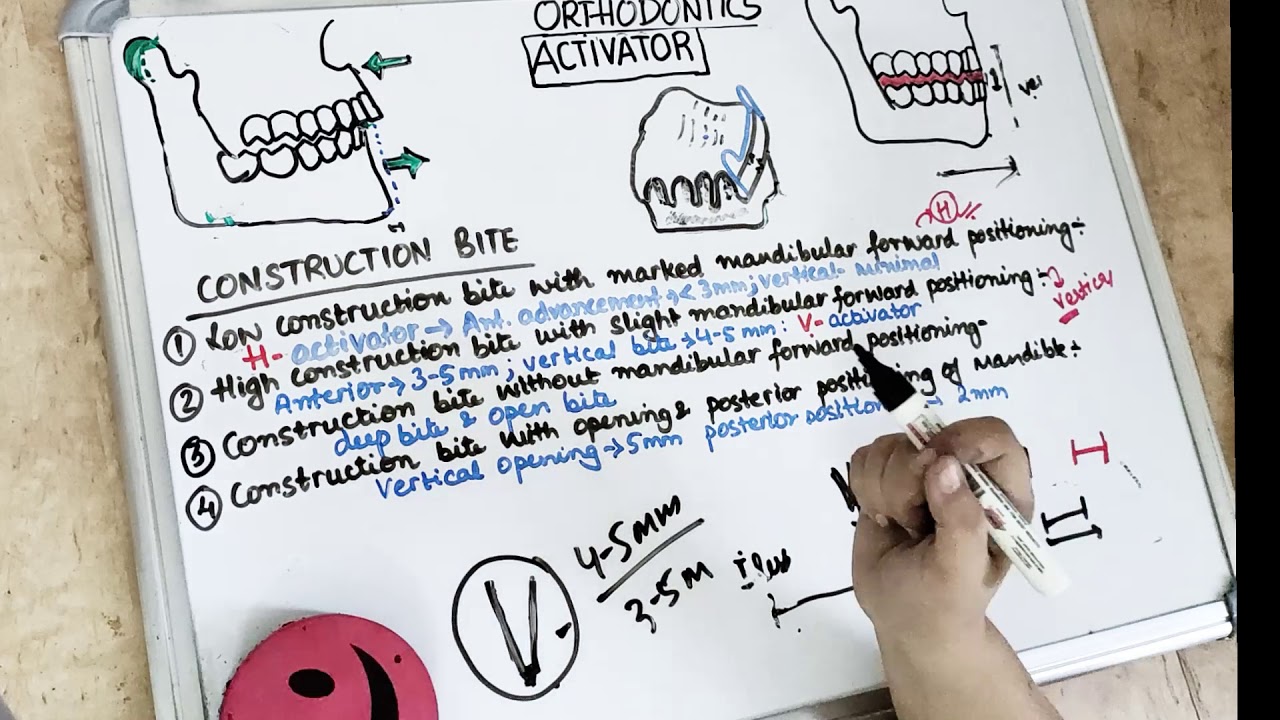 ORTHODONTICS
ACTIVATOR
1
ver
CONSTRUCTION BITE
H
① Low construction bite with marked mandibular forward positioning:-
H- activator → Ant. advancement → < 3mm; vertical- minimal
② High construction bite with slight mandibular forward positioning :-
vertical
Anterior → 3-5mm ; vertical bite → 4-5 mm : V- activator
③ Construction bite without mandibular forward positioning-
deep bite & open bite
④ Construction bite with opening & posterior positioning of Mandible:-
Vertical opening → 5mm posterior position → 2mm
V
4-5mm
3-5m
I
II